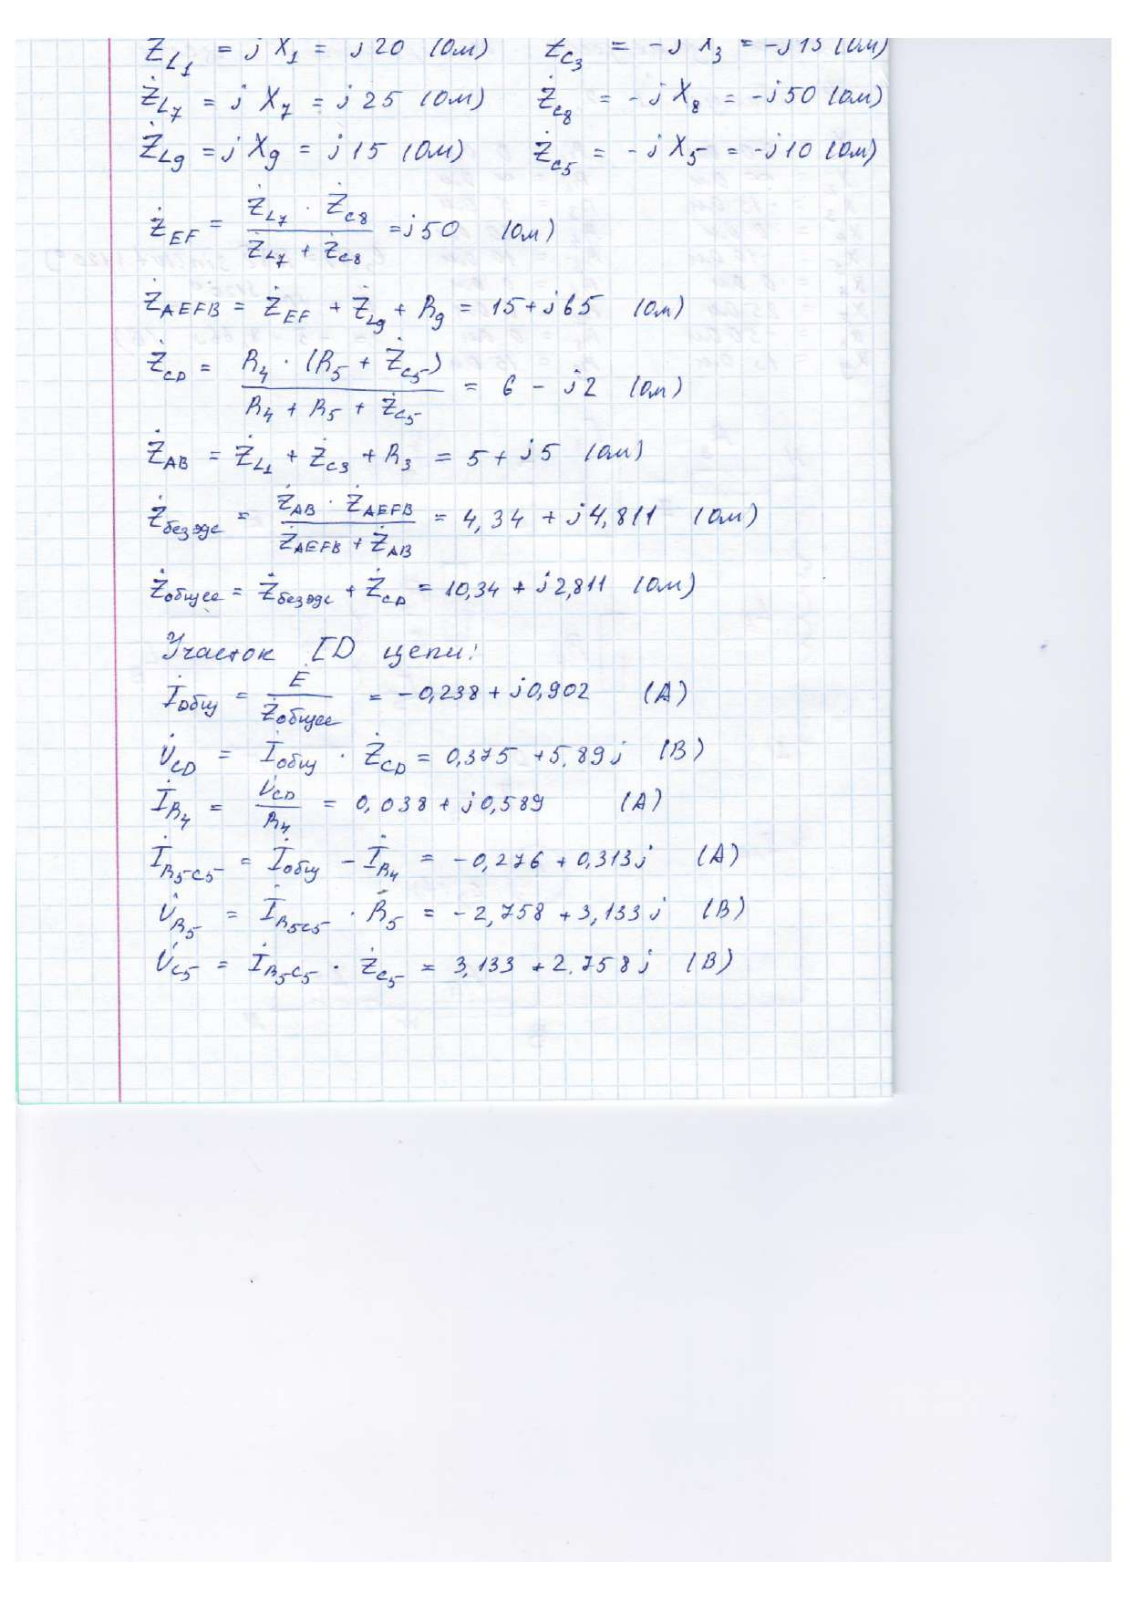 Ż_L1 = j X_1 = j20 (Ом) Ż_C3 = -j X_3 = -j15 (Ом)
Ż_L7 = j X_7 = j25 (Ом) Ż_C8 = -j X_8 = -j50 (Ом)
Ż_L9 = j X_9 = j15 (Ом) Ż_C5 = -j X_5 = -j10 (Ом)
Ż_EF = (Ż_L7 · Ż_C8) / (Ż_L7 + Ż_C8) = j50 (Ом)
Ż_AEFB = Ż_EF + Ż_L9 + R_9 = 15 + j65 (Ом)
Ż_CD = (R_4 · (R_5 + Ż_C5)) / (R_4 + R_5 + Ż_C5) = 6 - j2 (Ом)
Ż_AB = Ż_L1 + Ż_C3 + R_3 = 5 + j5 (Ом)
Ż_безэдс = (Ż_AB · Ż_AEFB) / (Ż_AEFB + Ż_AB) = 4,34 + j4,811 (Ом)
Ż_общее = Ż_безэдс + Ż_CD = 10,34 + j2,811 (Ом)
Участок CD цепи:
İ_общ = Ė / Ż_общее = -0,238 + j0,902 (А)
U̇_CD = İ_общ · Ż_CD = 0,375 + 5,89j (В)
İ_R4 = U̇_CD / R_4 = 0,038 + j0,589 (А)
İ_R5C5 = İ_общ - İ_R4 = -0,276 + 0,313j (А)
U̇_R5 = İ_R5C5 · R_5 = -2,758 + 3,133j (В)
U̇_C5 = İ_R5C5 · Ż_C5 = 3,133 + 2,758j (В)